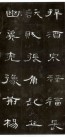 拜酒泉祿福長
訞賊張角起兵
幽冀兗豫荊楊